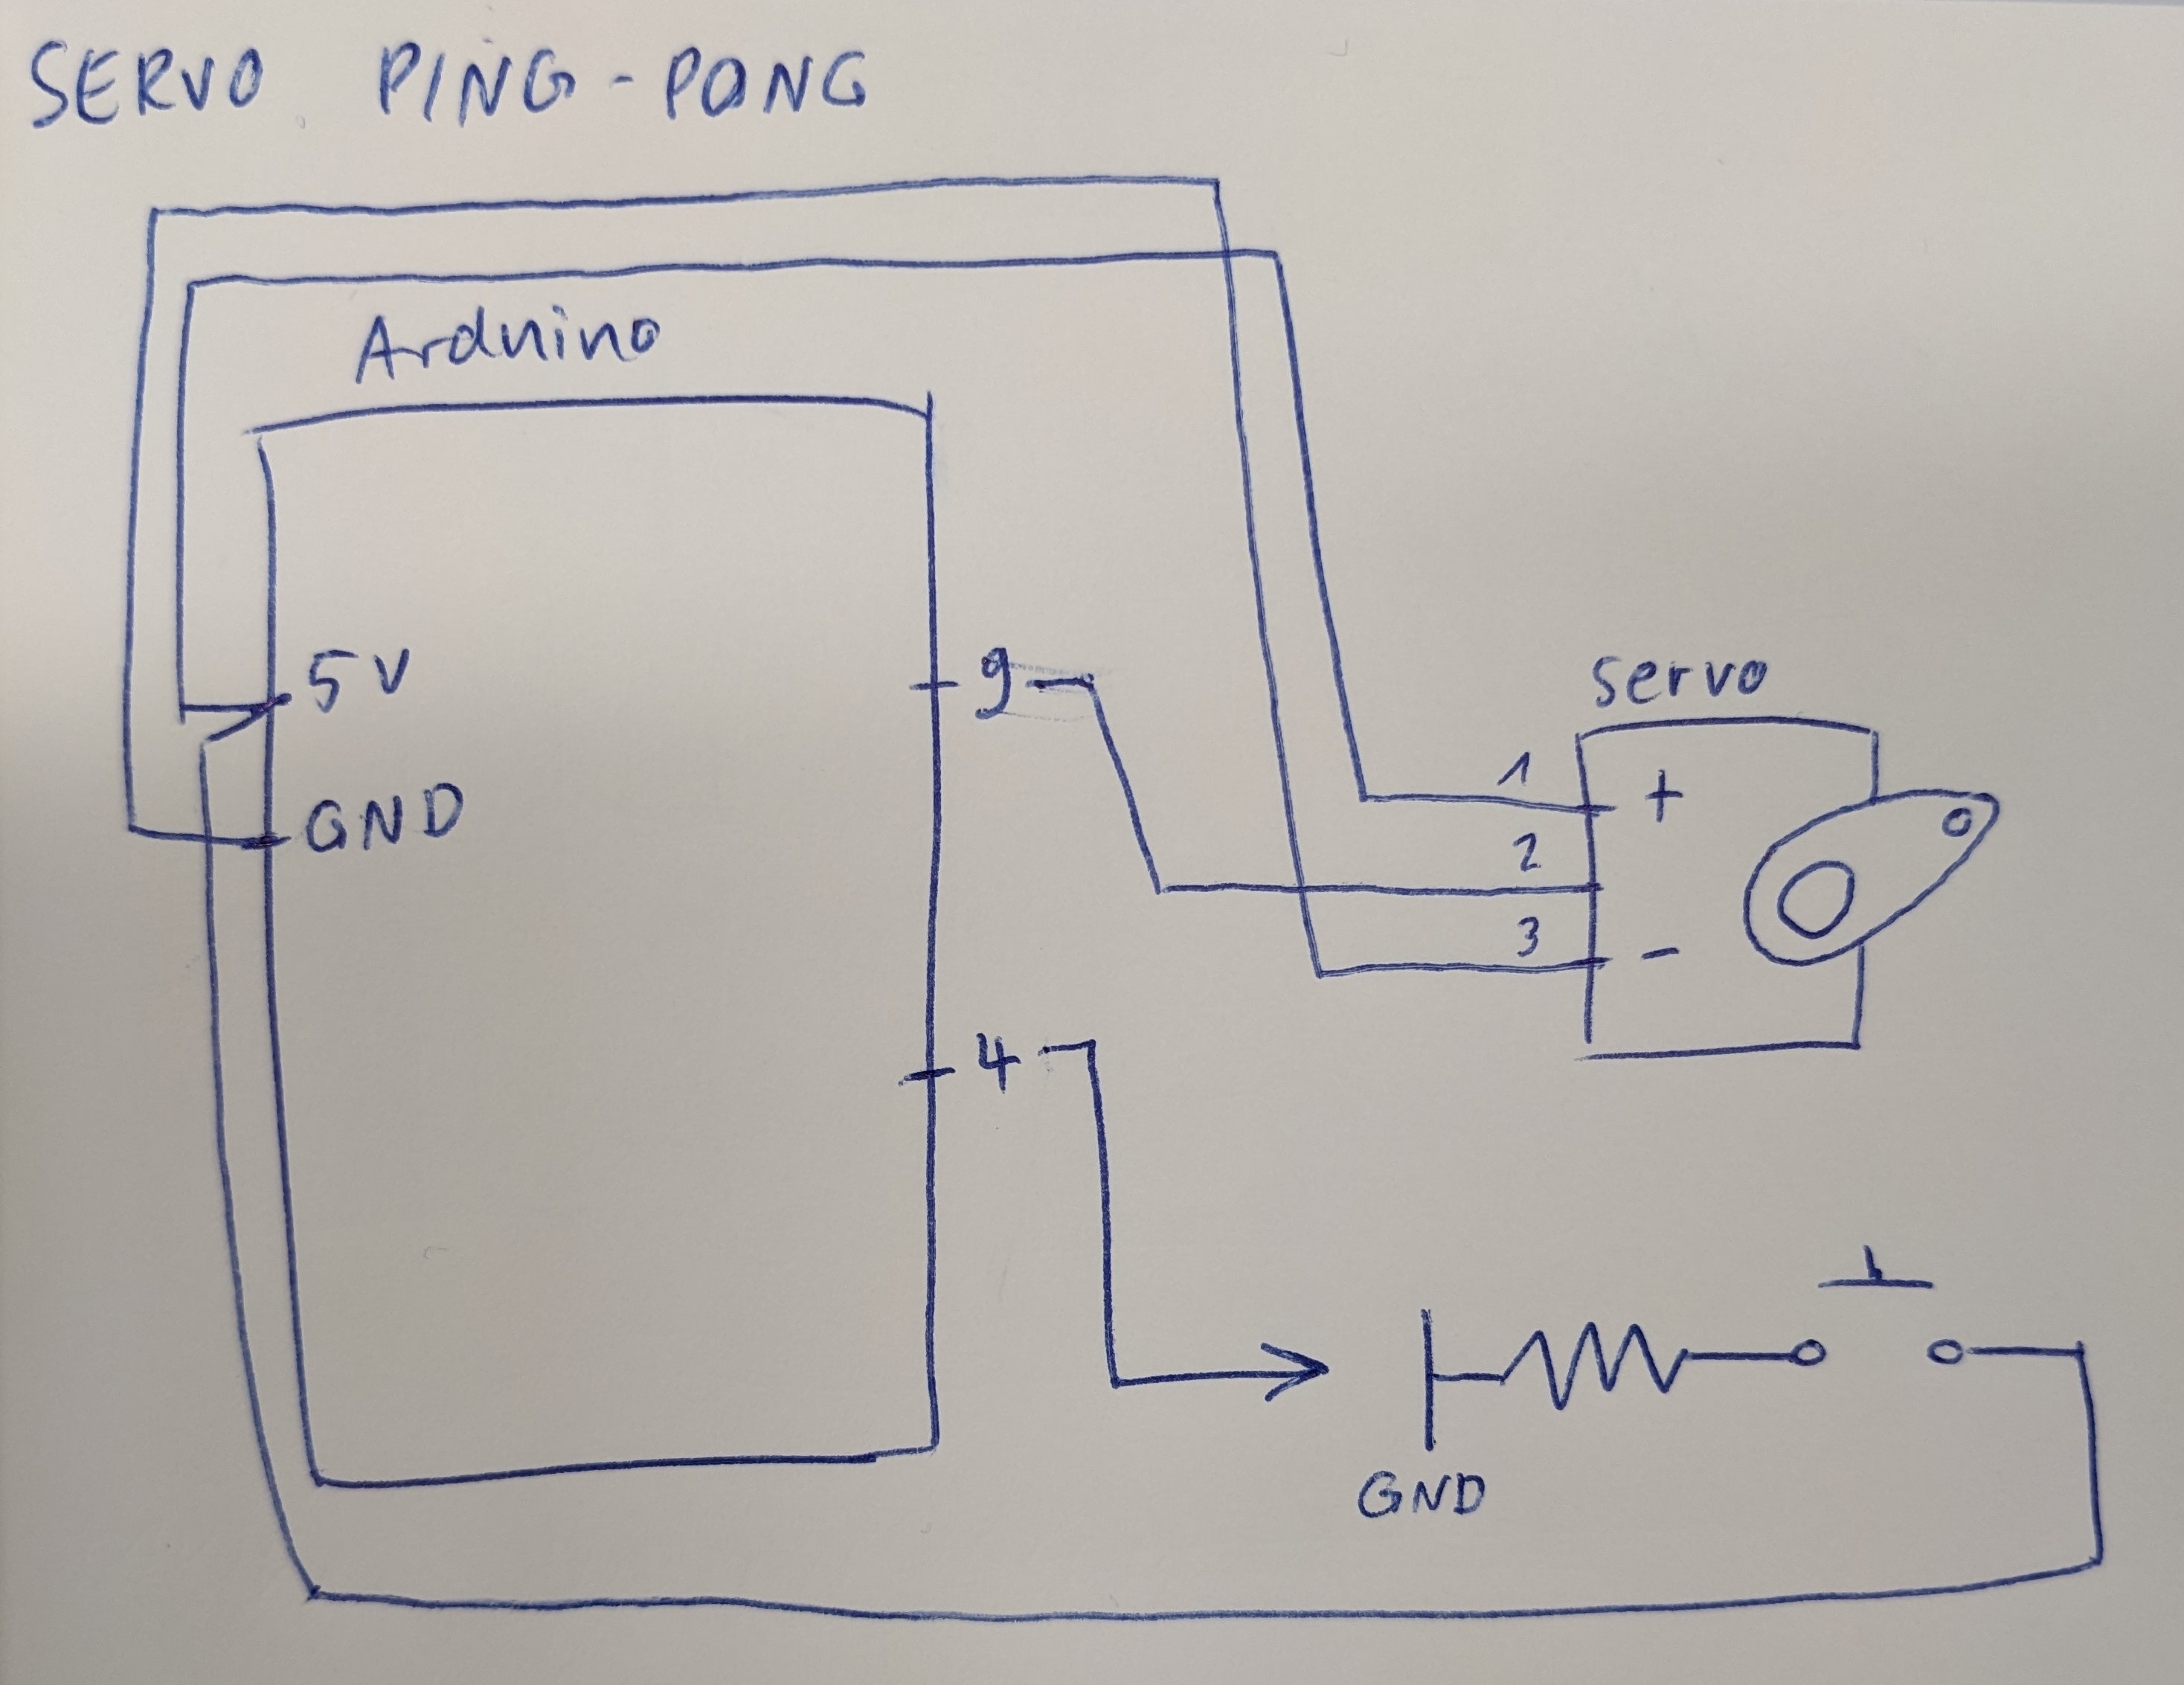 SERVO PING-PONG
Arduino
5V
GND
9
4
servo
1 +
2
3 -
GND